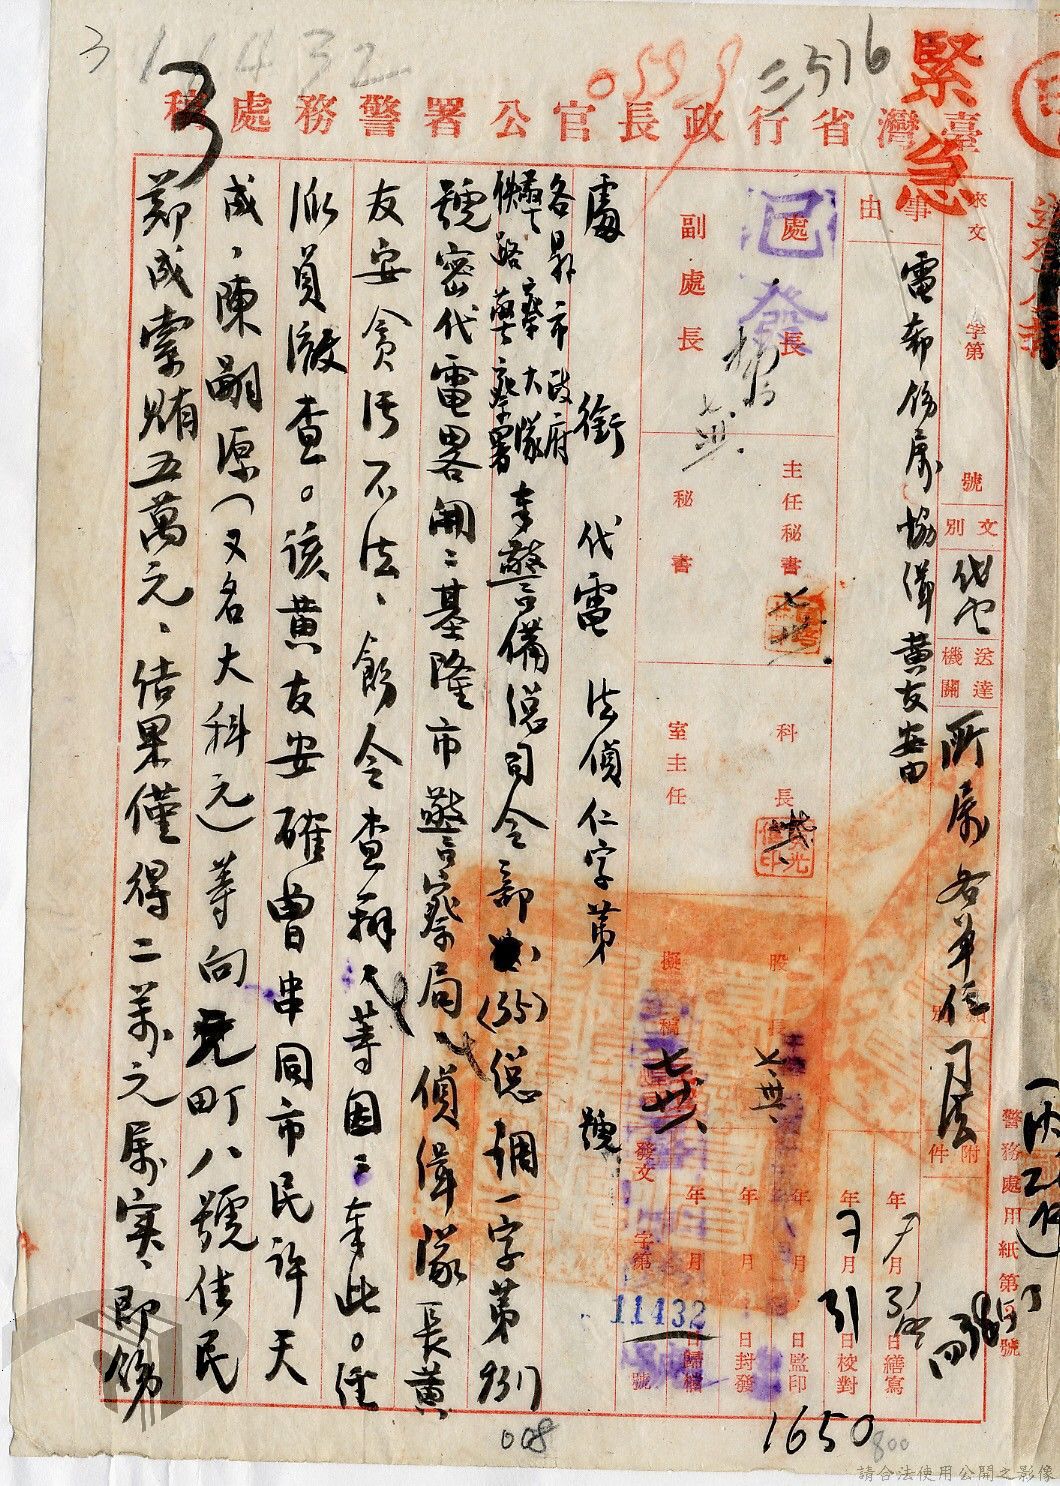 緊急
3 11432
055
三516
3
臺灣省行政長官公署警務處稿
來文 字第 號
文別 代電
送達機關 所屬各單位 司法
附件
事由 電希飭屬協緝黃友安由
處長
副處長
已發
主任秘書
秘書
科長
室主任
股長
擬稿
年7月31日繕寫
年7月31日校對
年 月 日監印
年 月 日封發
年 月 日歸檔
發文 字第 11432 號
警務處用紙第 號
處銜 代電 法偵仁字第 號
各縣市政府
警察大隊
鐵路警察署
奉警備總司令部(35)總調一字第931
號密代電畧開:基隆市警察局偵緝隊長黃
友安貪污不法、飭令查辦等因:奉此。經
派員澈查。該黃友安確曾串同市民許天
成、陳嗣源(又名大科元)等向元町八號住民
鄭成索賄五萬元、結果僅得二萬元屬實、即飭
1650
800
008
請合法使用公開之影像